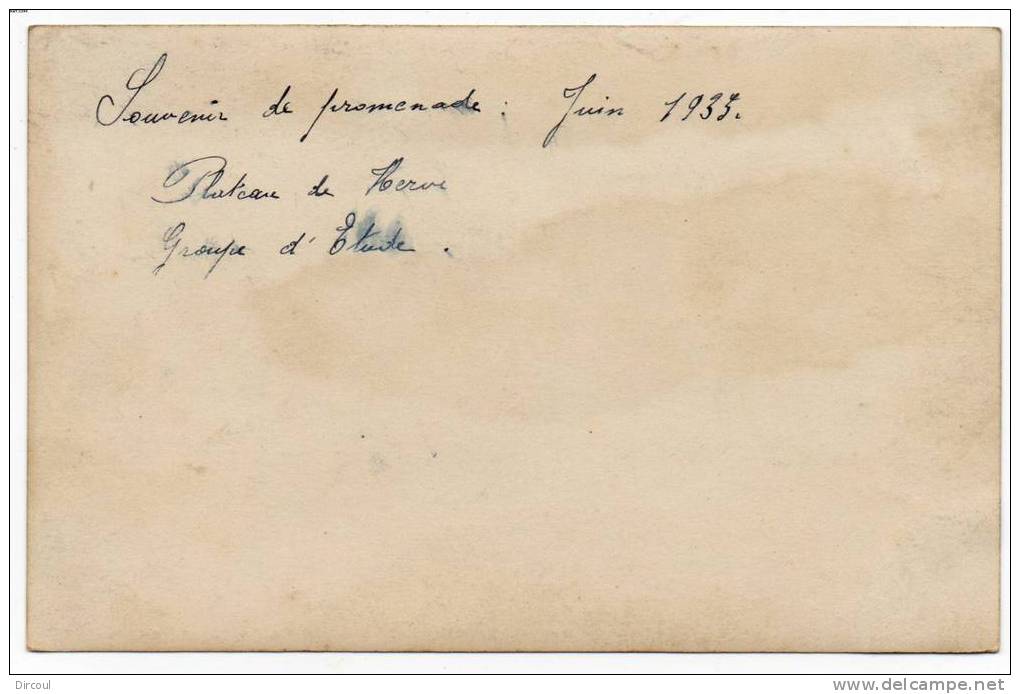 Souvenir de promenade : Juin 1935.
Plateau de Herve
Groupe d'Etude.
Dircoul
www.delcampe.net